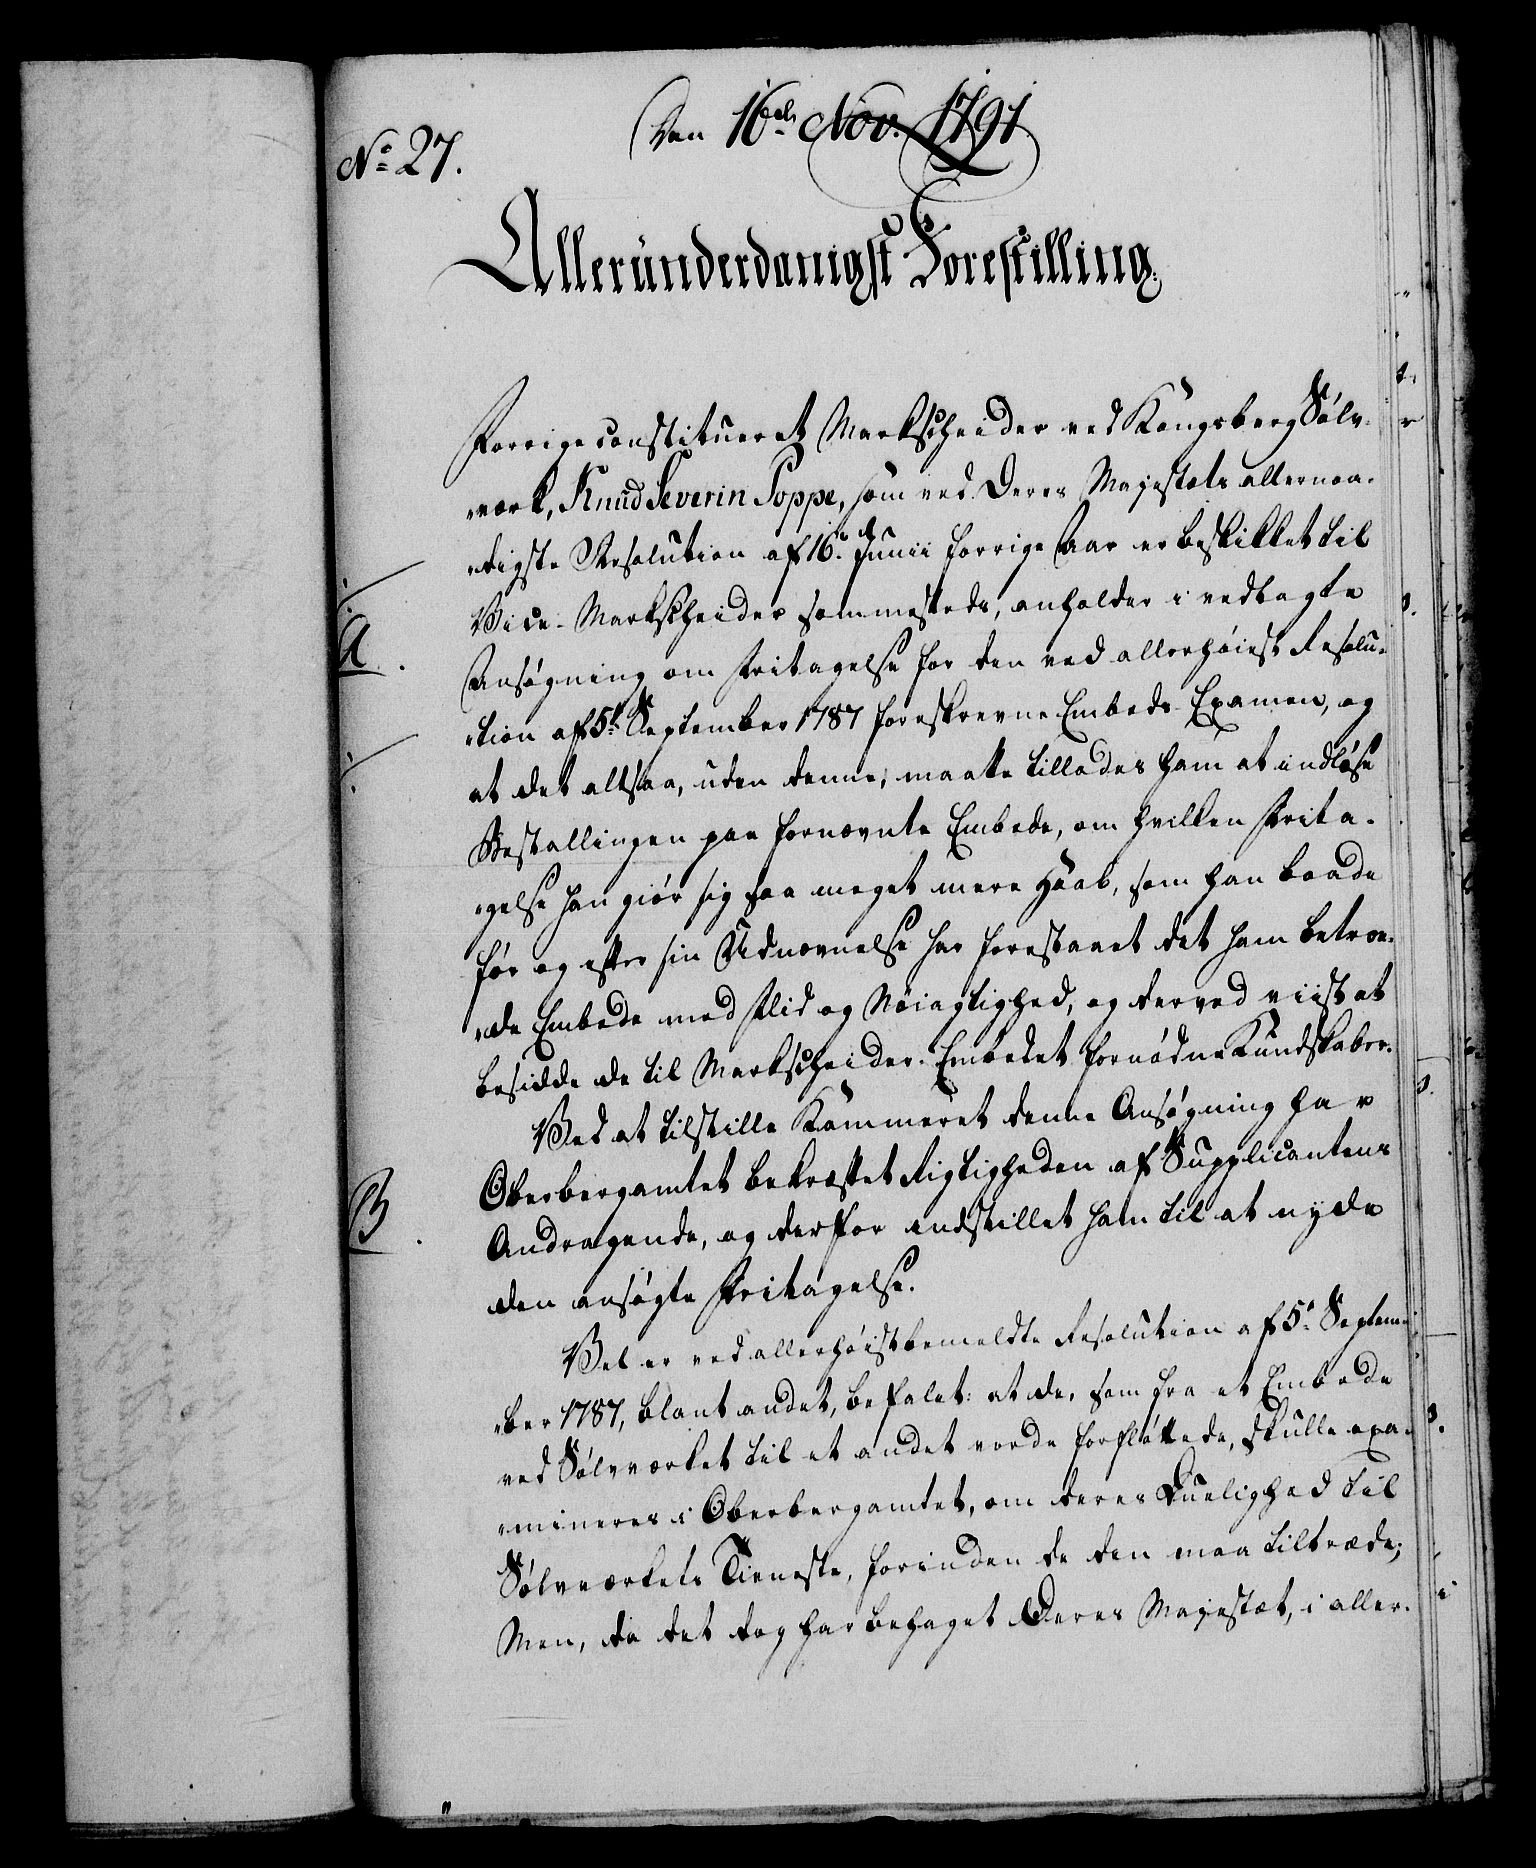 Den 16de Nov. 1791
No 27.
Allerunderdanigst Forestilling.
Forrige constitueret Markscheider ved Kongsberg Sølv-
værk, Knud Severin Poppe, som ved Deres Majestæts allernaa-
digste Resolution af 16de Junii forrige Aar er beskikket til
Vice-Markscheider sammesteds, anholder i vedlagte
A.
Ansøgning om Fritagelse for den ved allerhøiest Resolu-
tion af 5te September 1787 foreskrevne Embeds-Examen, og
at det altsaa, uden denne, maatte tillades ham at indløse
Bestallingen paa fornævnte Embede, om hvilken Frita-
gelse han giør sig saa meget mere Haab, som han baade
før og efter sin Udnævnelse har forestaaet det ham betroe-
de Embede med Flid og Nøiagtighed, og derved viist at
besidde de til Markscheider-Embedet fornødne Kundskaber.
Ved at tilstille Kammeret denne Ansøgning har
B.
Oberbergamtet bekræftet Rigtigheden af Supplicantens
Andragende, og derfor indstillet ham til at nyde
den ansøgte Fritagelse.
Vel er ved allerhøistbemeldte Resolution af 5te Septem-
ber 1787, blant andet, befalet: at de, som fra et Embede
ved Sølvværket til et andet vorde forfløttede, skulle exa-
mineres i Oberbergamtet, om deres Duelighed til
Sølvværkets Tieneste, forinden de den maa tiltræde;
Men, da det dog har behaget Deres Majestæt, i aller-